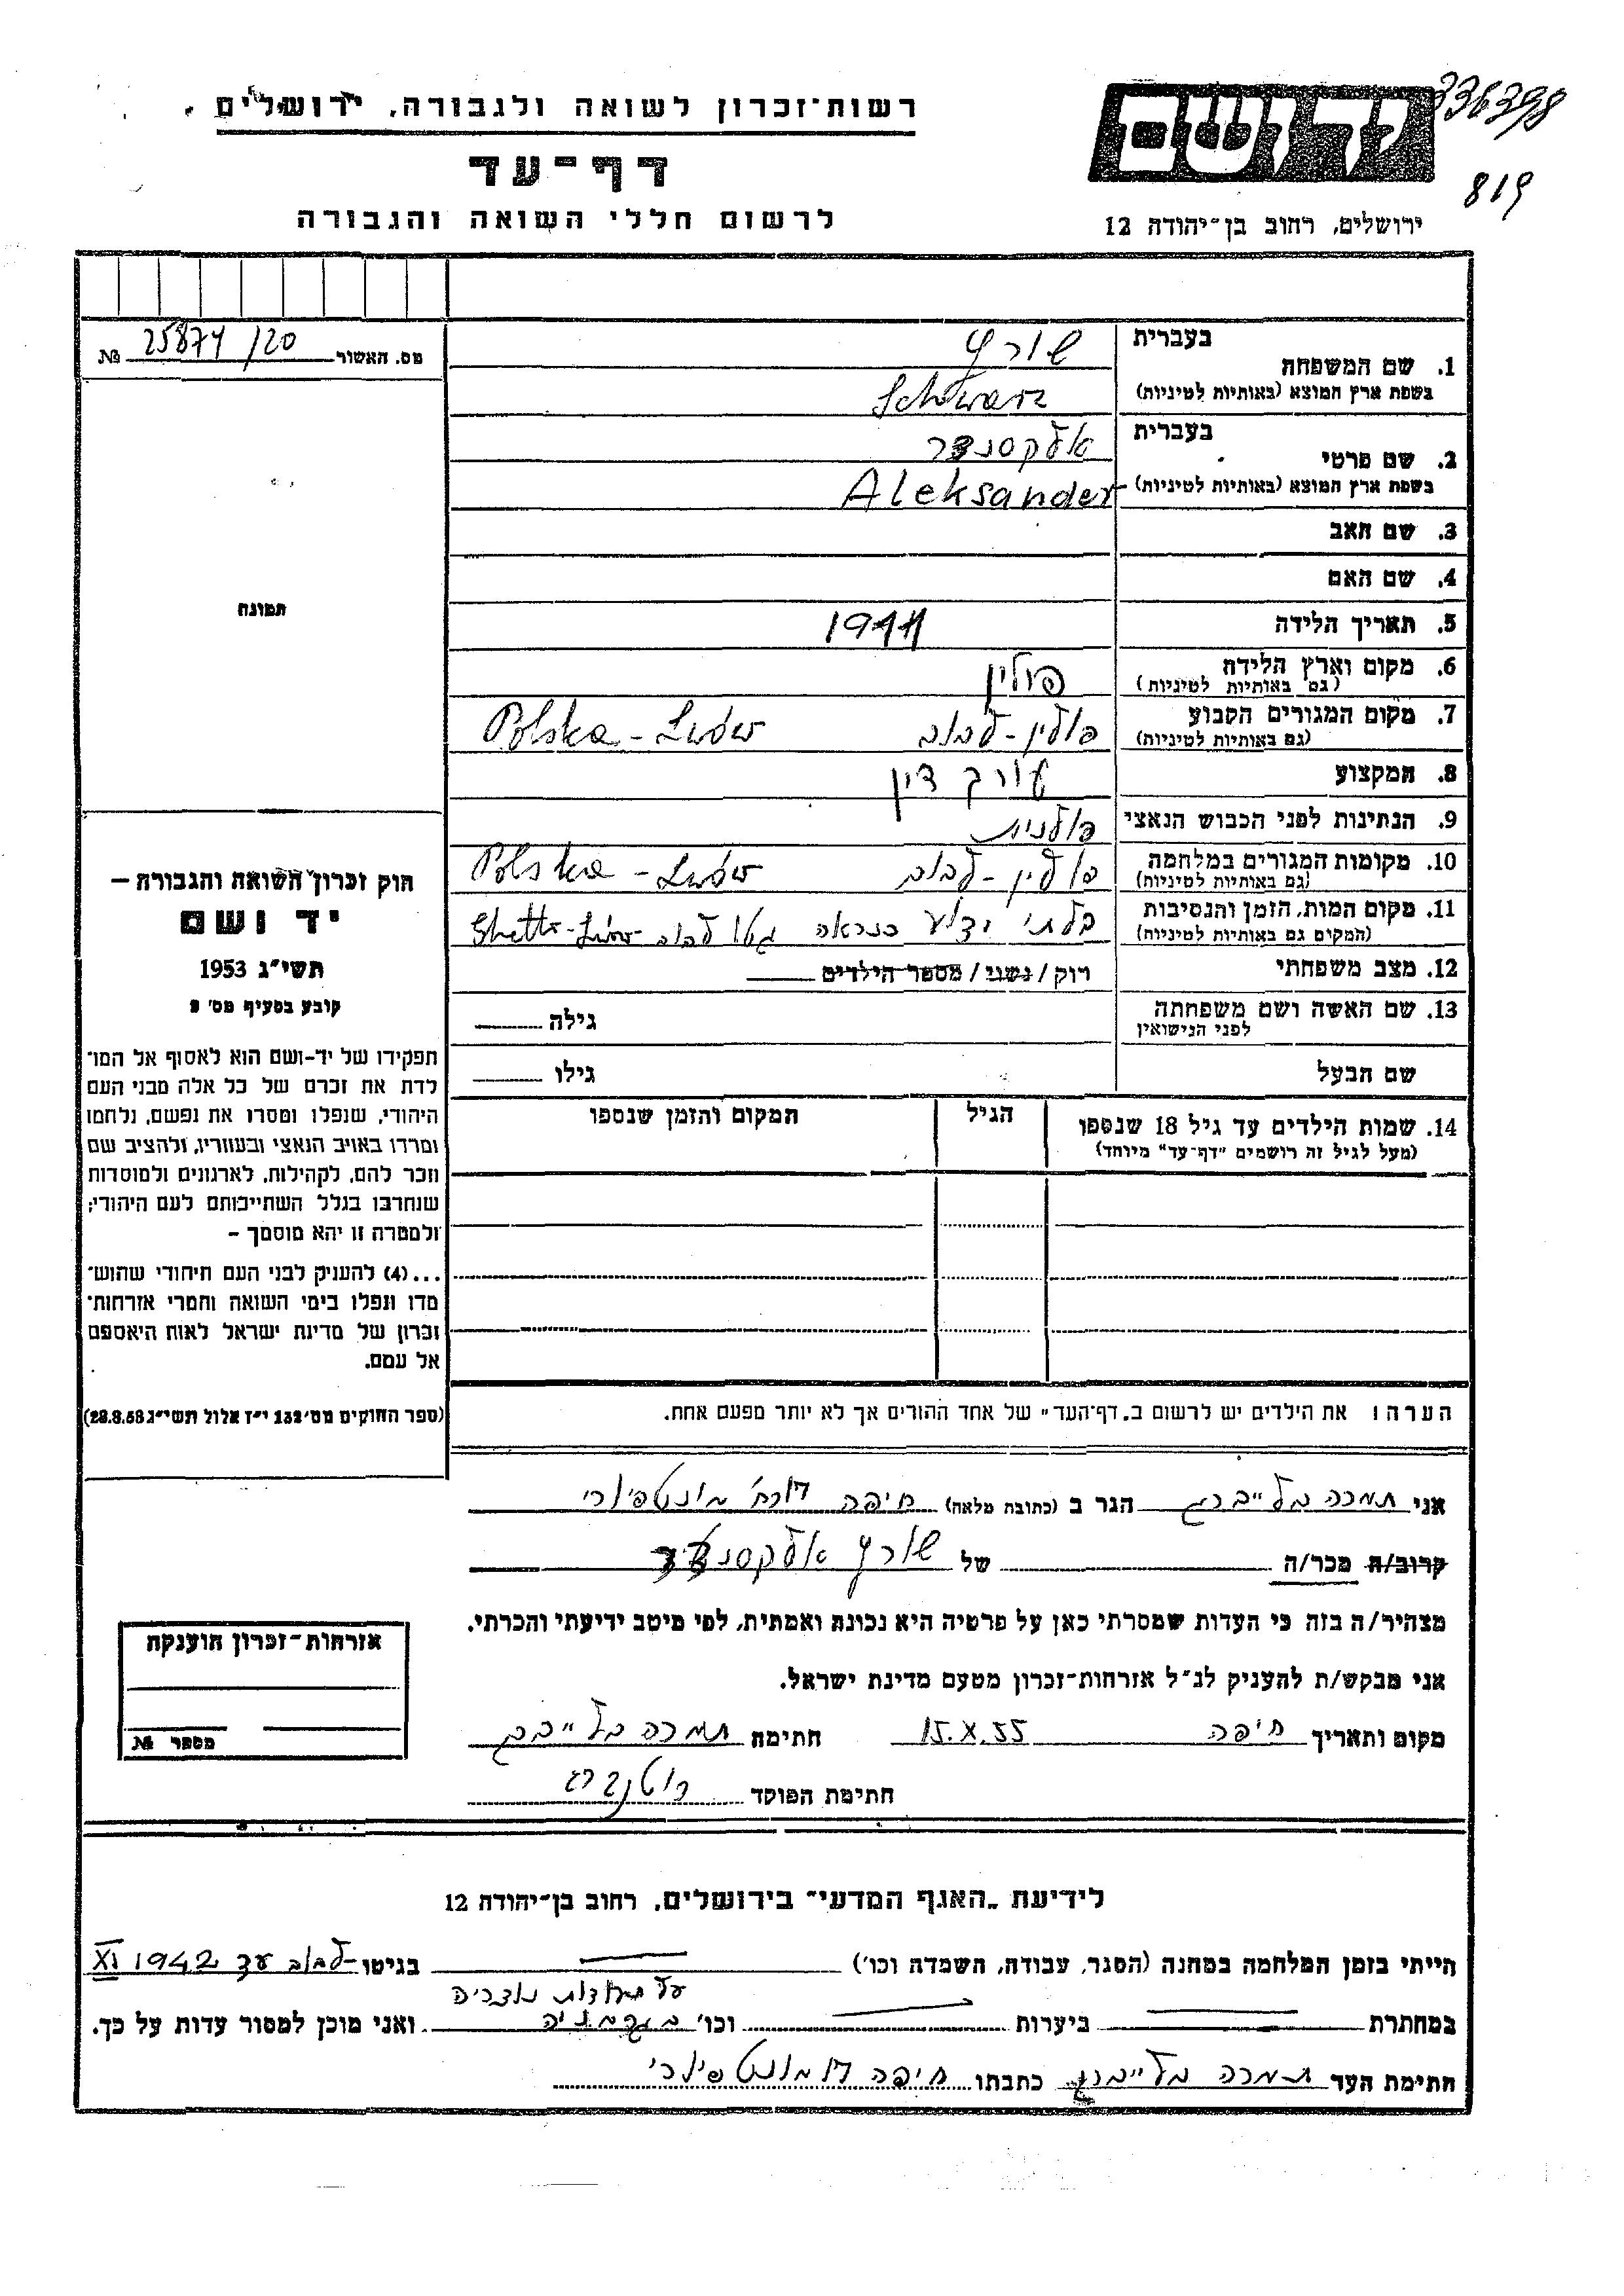 336398
819
יד ושם
ירושלים, רחוב בן־יהודה 12
רשות־זכרון לשואה ולגבורה, ירושלים
דף־עד
לרשום חללי השואה והגבורה
מס. האשור 25874/20 №
תמונה
1. שם המשפחה
בעברית
שורץ
בשפת ארץ המוצא (באותיות לטיניות)
Schwarz
2. שם פרטי
בעברית
אלכסנדר
בשפת ארץ המוצא (באותיות לטיניות)
Aleksander
3. שם האב
4. שם האם
5. תאריך הלידה
1911
6. מקום וארץ הלידה
(גם באותיות לטיניות)
פולין
7. מקום המגורים הקבוע
(גם באותיות לטיניות)
פולין - לבוב Polska - Lwów
8. המקצוע
עורך דין
9. הנתינות לפני הכבוש הנאצי
פולנית
10. מקומות המגורים במלחמה
(גם באותיות לטיניות)
פולין - לבוב Polska - Lwów
11. מקום המות, הזמן והנסיבות
(המקום גם באותיות לטיניות)
בלתי ידוע כנראה גטו לבוב Ghetto-Lwów
12. מצב משפחתי
רוק / נשוי / מספר הילדים
13. שם האשה ושם משפחתה
לפני הנישואין
גילה
שם הבעל
גילו
14. שמות הילדים עד גיל 18 שנספו
(מעל לגיל זה רושמים "דף־עד" מיוחד)
הגיל
המקום והזמן שנספו
חוק זכרון השואה והגבורה —
יד ושם
תשי"ג 1953
קובע בסעיף מס' 2
תפקידו של יד-ושם הוא לאסוף אל המו־
לדת את זכרם של כל אלה מבני העם
היהודי, שנפלו ומסרו את נפשם, נלחמו
ומרדו באויב הנאצי ובעוזריו, ולהציב שם
וזכר להם, לקהילות, לארגונים ולמוסדות
שנחרבו בגלל השתייכותם לעם היהודי;
ולמטרה זו יהא מוסמך –
...(4) להעניק לבני העם היהודי שהוש־
מדו ונפלו בימי השואה והמרי אזרחות־
זכרון של מדינת ישראל לאות היאספם
אל עמם.
(ספר החוקים מס' 132 י"ז אלול תשי"ג 28.8.53)
הערה: את הילדים יש לרשום ב„דף־העד" של אחד ההורים אך לא יותר מפעם אחת.
אני תמרה הגר ב (כתובת מלאה) חיפה רח' מונטפיורי
קרוב/ה מכר/ה של שורץ אלכסנדר
מצהיר/ה בזה כי העדות שמסרתי כאן על פרטיה היא נכונה ואמתית, לפי מיטב ידיעתי והכרתי.
אני מבקש/ת להעניק לנ"ל אזרחות־זכרון מטעם מדינת ישראל.
מקום ותאריך חיפה 15.X.55 חתימה תמרה
חתימת הפוקד רוטנברג
אזרחות־זכרון הוענקה
מספר №
לידיעת „האגף המדעי" בירושלים, רחוב בן־יהודה 12
הייתי בזמן המלחמה במחנה (הסגר, עבודה, השמדה וכו') בגיטו לבוב עד XI 1942
על תעודות נוצריה
במחתרת ביערות וכו' בגרמניה ואני מוכן למסור עדות על כך.
חתימת העד תמרה כתבתו חיפה רח מונטפיורי